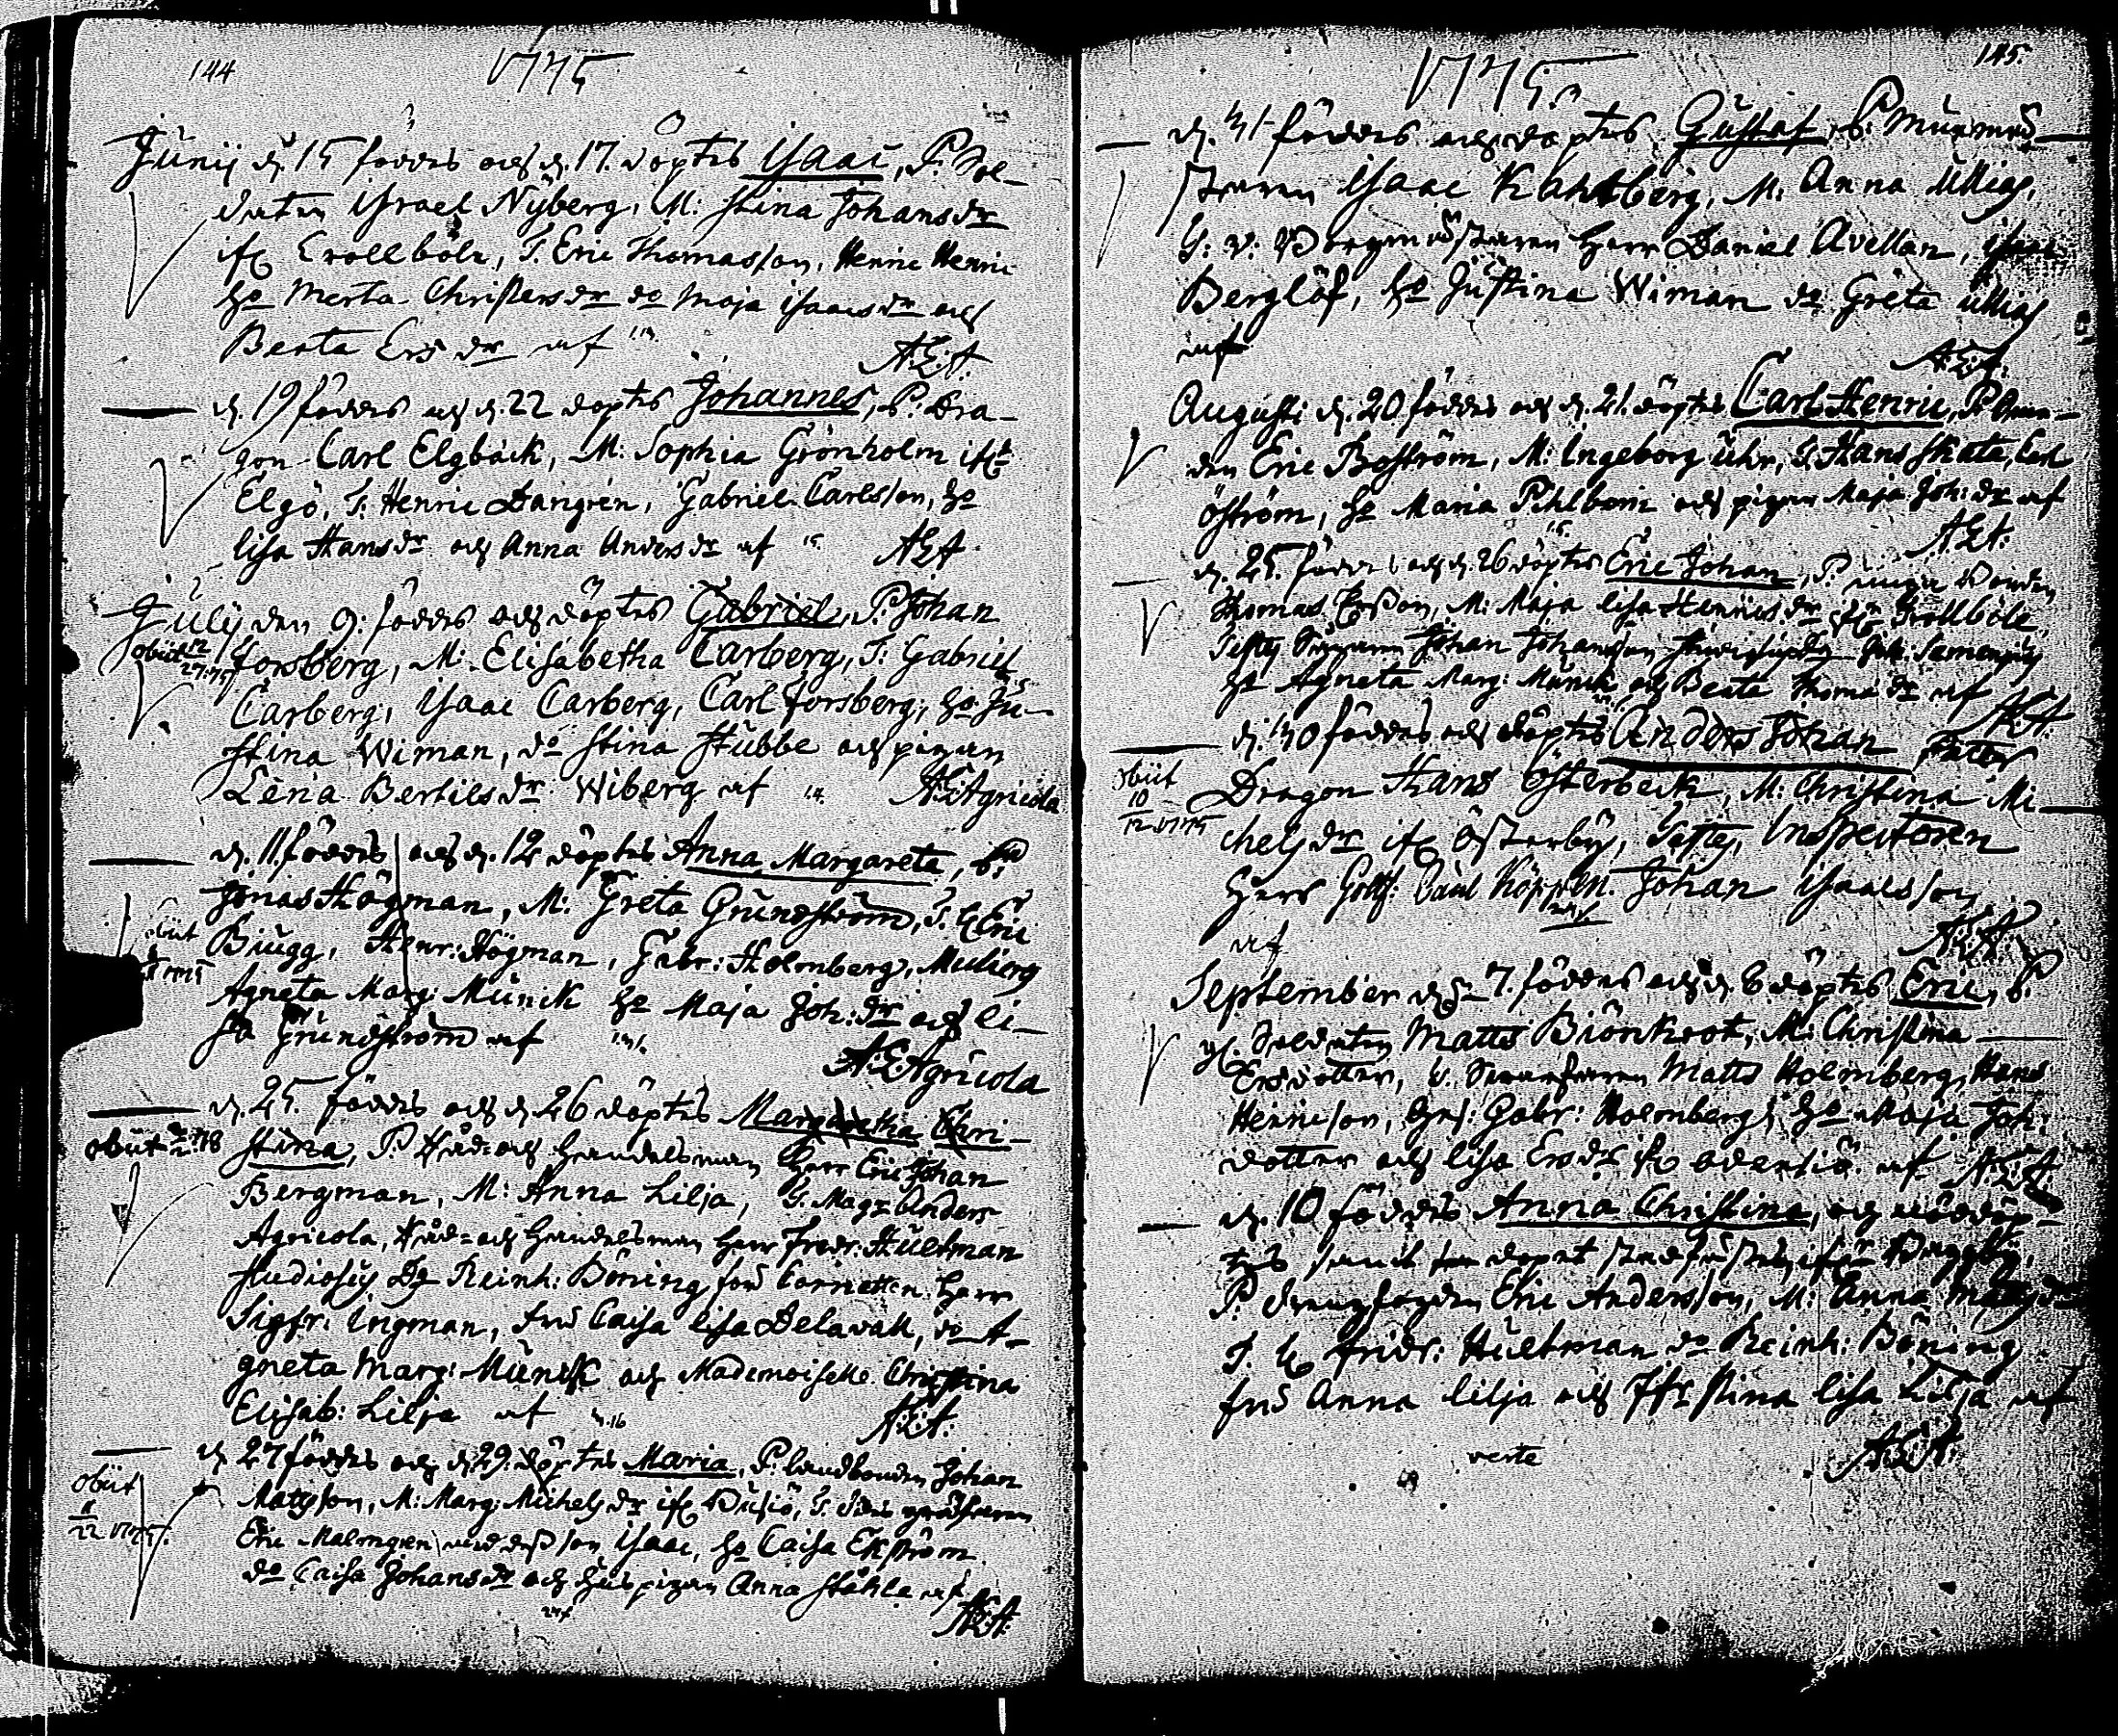 144
1775
Junij d. 15 föddes och d. 17. döptes Isaac, P. Sol-
daten Israel Nyberg, M: Stina Johansdr
ifr Trollböle, T. Eric Thomasson, Henric Henric
ho Merta Christersdr do Maja Isaacsdr och
Beata Ersdr af
A.E.A.
d. 19 föddes och d. 22 döptes Johannes, P: Dra-
gon Carl Elgbäck, M: Sophia Grönholm ifr
Elgö, T. Henric Dangren, Gabriel Carlsson, ho
Lisa Hansdr och Anna Andersdr af
A.E.A.
Julij den 9. föddes och döptes Gabriel, P. Johan
obiit 12/27.75
Forsberg, M: Elisabetha Carberg, T: Gabriel
Carberg, Isaac Carberg, Carl Forsberg, ho Ju-
stina Wiman, do Stina Stubbe och pigan
Lena Bertilsdr Wiberg af
A.E. Agricola
d. 11. föddes och d. 12 döptes Anna Margareta, P:
Jonas Högman, M: Greta Grundström, T.
obiit
Biugg, Henr: Högman, Gabr: Holmberg, Mulieres
Agneta Marg: Münck ho Maja Joh:dr och Li-
sa Grundström af
A.E. Agricola
d. 25. föddes och d. 26 döptes Margaretha Chri-
obiit
stina, P. Råd- och Handelsman Herr Eric Johan
Bergman, M: Anna Lilja, T. Mag: Anders
Agricola, Råd- och Handelsman Herr Fredr: Hultman
Studiosus Do Reinh: Böning Cornetten Herr
Sigfr: Ingman, Fru Caisa Lisa Delavall, do A-
gneta Marg: Münck och Mademoiselle Christina
Elisab: Lilja af
A.E.A.
d 27 föddes och d. 29. döptes Maria, P. Landbonden Johan
obiit
22 1775.
Matsson, M: Marg: Michelsdr ifr Busiö, T.
Eric Malmgren son Isaac, ho Caisa Ekström
do Caisa Johansdr och pigan Anna Ståhle af
A.E.A.
145.
1775.
d. 31 föddes och döptes Gustaf, P: Murmä-
staren Isaac Kahlberg, M: Anna Ulrica,
T: v: Borgmästaren Herr Daniel Avellan, Isaac
Berglöf, ho Justina Wiman do Greta
af
A.E.A.
Augusti d. 20 föddes och d. 21. döptes Carl Henric, P.
Eric Boström, M: Ingeborg Uhr, T. Hans Skata, Carl
Öström, ho Maria Pihlbom och pigan Maja Joh:dr af
A.E.A.
d. 25. föddes och d. 26 döptes Eric Johan, P. unga Bonden
Thomas Ersson, M: Maja Lisa Henricsdr ifr Trollböle
Testes Johan Johansson
ho Agneta Marg: Münck och Beata Thomædr af
A.E.A.
d. 30 föddes och döptes Anders Johan Pater
obiit
10/12 1775
Dragon Hans Österbeck, M: Christina Mi-
chelsdr ifr Österby, Testes, Inspectoren
Herr Gottf: Paul Köppen. Johan Isaacsson
af
A.E.A.
September d. 7. föddes och d. 8 döptes Eric, P.
Soldaten Matts Biönkrot, M: Christina
Ersdotter, T. Matts Holmberg, Hans
Henricson, Gabr: Holmberg, ho Maja Joh:
dotter och Lisa Ersdr ifr Odensiö af A.E.A.
d. 10 föddes Anna Christina, och nöddöp-
tes
P. Eric Andersson, M: Anna
T. Fridr: Hultman do Reinh: Böning
Fru Anna Lilja och Jfr Stina Lisa Lilja af
A.E.A.
verte